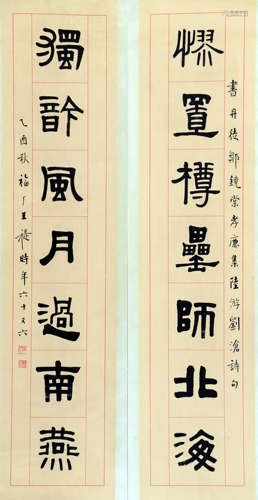 書丹徒鄒鏡棠孝廉集陸游劉滄詩句
憀置樽罍師北海
獨訡風月過南燕
乙酉秋福厂王禔時年六十又六